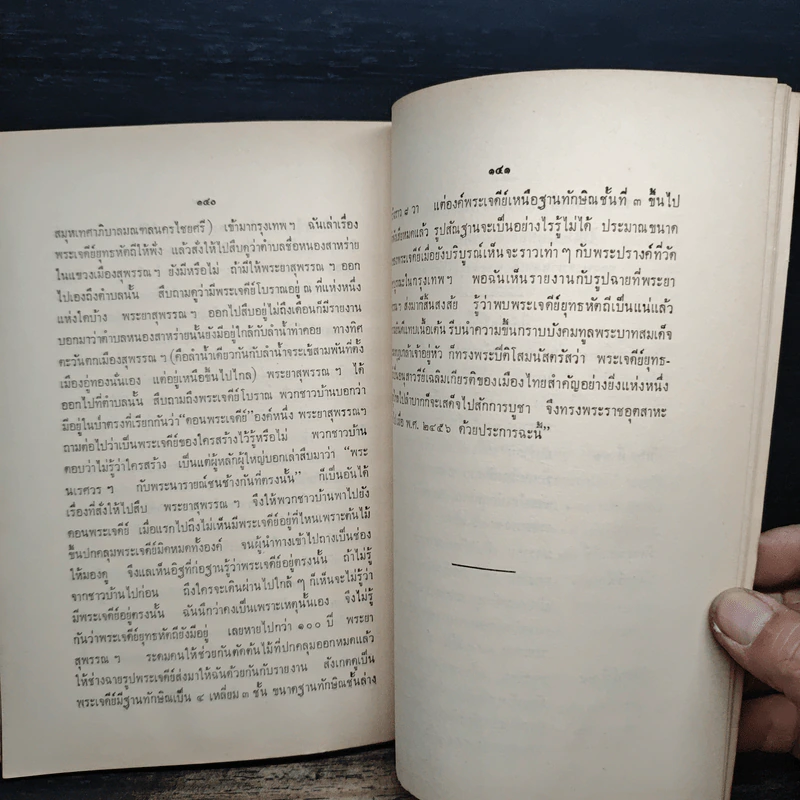 ๑๔๐
สมุหเทศาภิบาลมณฑลนครไชยศรี) เข้ามากรุงเทพ ฯ ฉันเล่าเรื่อง
พระเจดีย์ยุทธหัตถีให้ฟัง แล้วสั่งให้ไปสืบดูว่าตำบลชื่อหนองสาหร่าย
ในแขวงเมืองสุพรรณ ฯ ยังมีหรือไม่ ถ้ามีให้พระยาสุพรรณ ฯ ออก
ไปเองถึงตำบลนั้น สืบถามดูว่ามีพระเจดีย์โบราณอยู่ ณ ที่แห่งหนึ่ง
แห่งใดบ้าง พระยาสุพรรณ ฯ ออกไปสืบอยู่ไม่ถึงเดือนก็มีรายงาน
บอกมาว่าตำบลหนองสาหร่ายนั้นยังมีอยู่ใกล้กับลำน้ำท่าคอย ทางทิศ
ตะวันตกเมืองสุพรรณ ฯ (คือลำน้ำเดียวกันกับลำน้ำจรเข้สามพันที่ตั้ง
เมืองอู่ทองนั่นเอง แต่อยู่เหนือขึ้นไปไกล) พระยาสุพรรณ ฯ ได้
ออกไปที่ตำบลนั้น สืบถามถึงพระเจดีย์โบราณ พวกชาวบ้านบอกว่า
มีอยู่ในป่าตรงที่เรียกกันว่า“ดอนพระเจดีย์”องค์หนึ่ง พระยาสุพรรณฯ
ถามต่อไปว่าเป็นพระเจดีย์ของใครสร้างไว้รู้หรือไม่ พวกชาวบ้าน
ตอบว่าไม่รู้ว่าใครสร้าง เป็นแต่ผู้หลักผู้ใหญ่บอกเล่าสืบมาว่า “พระ
นเรศวร ฯ กับพระนารายณ์ชนช้างกันที่ตรงนั้น” ก็เป็นอันได้
เรื่องที่สั่งให้ไปสืบ พระยาสุพรรณ ฯ จึงให้พวกชาวบ้านพาไปยัง
ดอนพระเจดีย์ เมื่อแรกไปถึงไม่เห็นมีพระเจดีย์อยู่ที่ไหนเพราะต้นไม้
ขึ้นปกคลุมพระเจดีย์มิดหมดทั้งองค์ จนผู้นำทางเข้าไปถางเป็นช่อง
ให้มองดู จึงแลเห็นอิฐที่ก่อฐานรู้ว่าพระเจดีย์อยู่ตรงนั้น ถ้าไม่รู้
จากชาวบ้านไปก่อน ถึงใครจะเดินผ่านไปใกล้ ๆ ก็เห็นจะไม่รู้ว่า
มีพระเจดีย์อยู่ตรงนั้น ฉันนึกว่าคงเป็นเพราะเหตุนั้นเอง จึงไม่รู้
กันว่าพระเจดีย์ยุทธหัตถียังมีอยู่ เลยหายไปกว่า ๑๐๐ ปี พระยา
สุพรรณ ฯ ระดมคนให้ช่วยกันตัดต้นไม้ที่ปกคลุมออกหมดแล้ว
ให้ช่างฉายรูปพระเจดีย์ส่งมาให้ฉันด้วยกันกับรายงาน สังเกตดูเป็น
พระเจดีย์มีฐานทักษิณเป็น ๔ เหลี่ยม ๓ ชั้น ขนาดฐานทักษิณชั้นล่าง
๑๔๑
๘ วา แต่องค์พระเจดีย์เหนือฐานทักษิณชั้นที่ ๓ ขึ้นไป
หมดแล้ว รูปสัณฐานจะเป็นอย่างไรรู้ไม่ได้ ประมาณขนาด
พระเจดีย์เมื่อยังบริบูรณ์เห็นจะราวเท่า ๆ กับพระปรางค์ที่วัด
ในกรุงเทพ ฯ พอฉันเห็นรายงานกับรูปฉายที่พระยา
ฯ ส่งมาก็สิ้นสงสัย รู้ว่าพบพระเจดีย์ยุทธหัตถีเป็นแน่แล้ว
แทบเนื้อเต้น รีบนำความขึ้นกราบบังคมทูลพระบาทสมเด็จ
เจ้าอยู่หัว ก็ทรงพระปีติโสมนัสตรัสว่า พระเจดีย์ยุทธ-
อนุสาวรีย์เฉลิมเกียรติของเมืองไทยสำคัญอย่างยิ่งแห่งหนึ่ง
ไปลำบากก็จะเสด็จไปสักการบูชา จึงทรงพระราชอุตสาหะ
เมื่อ พ.ศ. ๒๔๕๖ ด้วยประการฉะนี้”